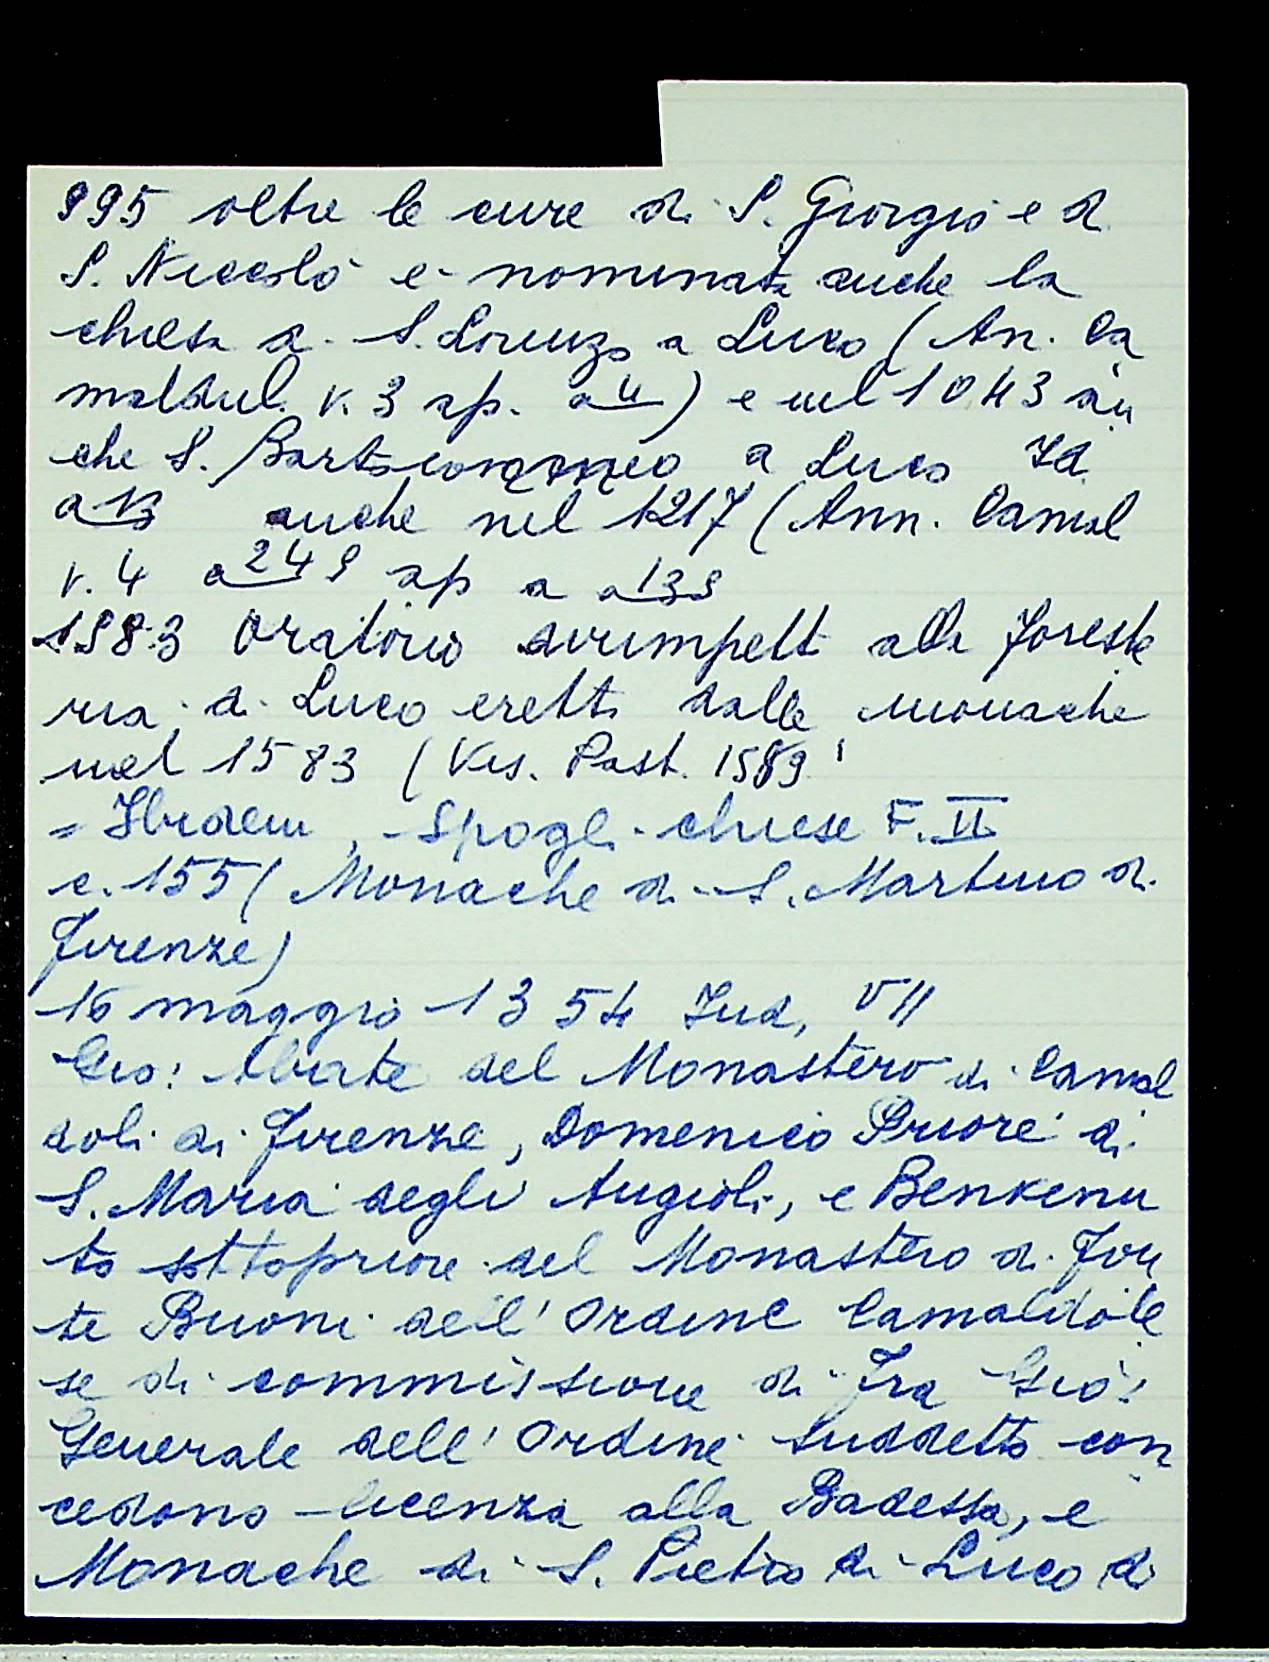 995 oltre le cure di S. Giorgio e di
S. Niccolò è nominata anche la
chiesa di S. Lorenzo a Luco (An. Ca
maldul. v. 3 ap. a 4) e nel 1043 an
che S. Bartolommeo a Luco Id.
a 13 anche nel 1217 (Ann. Camal
v. 4 a 249 ap a a 139
1583 Oratorio dirimpetto alla foreste
ria di Luco eretto dalle monache
nel 1583 (Vis. Past. 1589
= Ibidem, - Spogli chiese F. II
c. 155 (Monache di S. Martino di
Firenze)
16 maggio 1354 Ind, VII
Gio: Abate del Monastero di Camal
doli di Firenze, Domenico Priore di
S. Maria degli Angioli, e Benvenu
to sottopriore del Monastero di Fon
te Buoni dell' Ordine Camaldole
se di commissione di Fra Gio:
Generale dell' Ordine suddetto con
cedono licenza alla Badessa, e
Monache di S. Pietro di Luco di